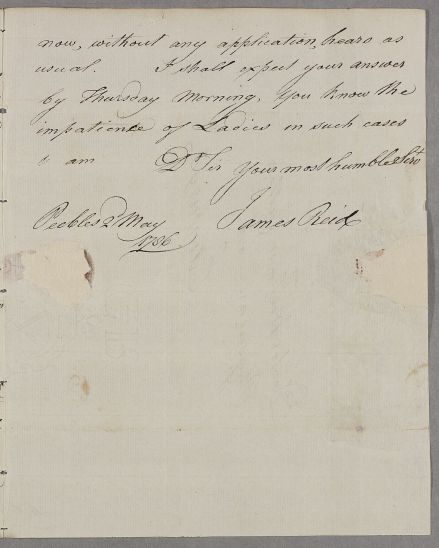 now, without any application, hears as
usual. I shall expect your answer
by Thursday Morning. You know the
impatience of Ladies in such cases
I am Dr Sir Your most humble Servt
James Reid
Peebles 2d May
1786